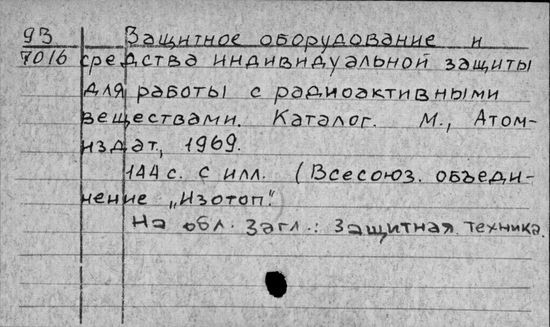 93 Защитное оборудование и
7016 средства индивидуальной защиты
для работы с радиоактивными
веществами. Каталог. М., Атом-
издат, 1969.
144 с. с илл. (Всесоюз. объеди-
нение „Изотоп".
На обл. загл.: Защитная техника.